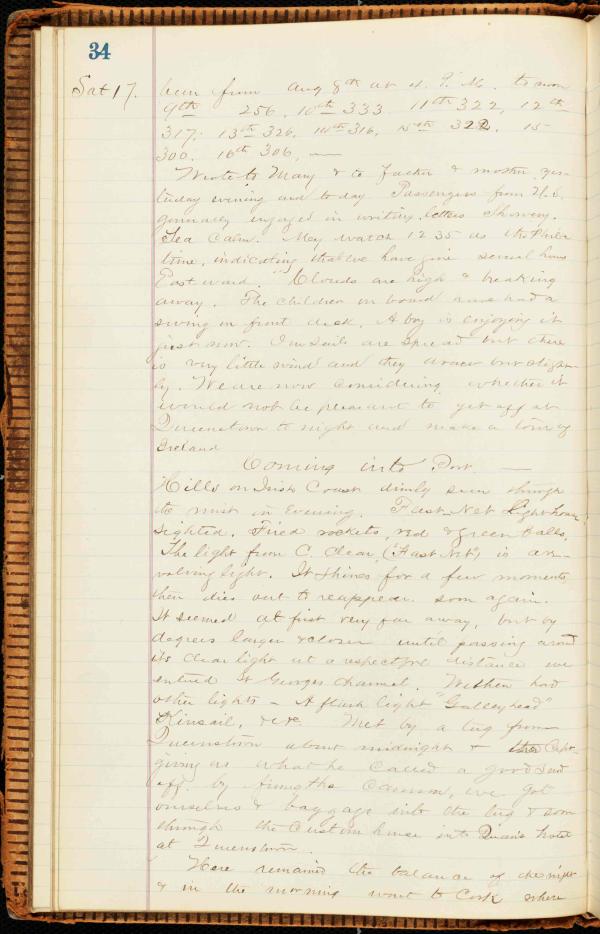 34
Sat 17. been from Aug 8th at 4 P.M. to noon
9th 256, 10th 333 11th 322, 12th
317; 13th 326, 14th 316, 15th 322. 15-
300. 16th 306, —
Wrote to Mary & to Father & mother, yes-
terday evening and to day Passengers from U.S.
generally engaged in writing letters Showery.
Sea Calm. My watch 12 35 as the Phila
time, indicating that we have gone several hours
East ward. Clouds are high & breaking
away. The children on board have had a
swing on front deck. A boy is enjoying it
just now. Our sails are spread but there
is very little wind and they draw but slight-
ly. We are now considering whether it
would not be pleasant to get off at
Queenstown to night and make a tour of
Ireland
Coming into Port —
Hills on Irish Coast dimly seen through
the mist in Evening. Fast Net Light house
sighted. Fired rockets, red & green balls.
The light from C. Clear, ("Fast Net") is a re-
volving light. It shines for a few moments,
then dies out to reappear soon again.
It seemed at first very far away, but by
degrees larger & closer until passing around
its clear light at a respectful distance we
entered St Georges Channel. We then had
other lights - A flash light "Galleyhead"
Kinsail, &c &c. Met by a tug from
Queenstown about midnight & the Capt-
giving us what he called a good send
off by firing the Cannon, we got
ourselves & baggage into the tug & soon
through the Custom house into Queens hotel
at Queenstown.
Here remained the balance of the night
& in the morning went to Cork where